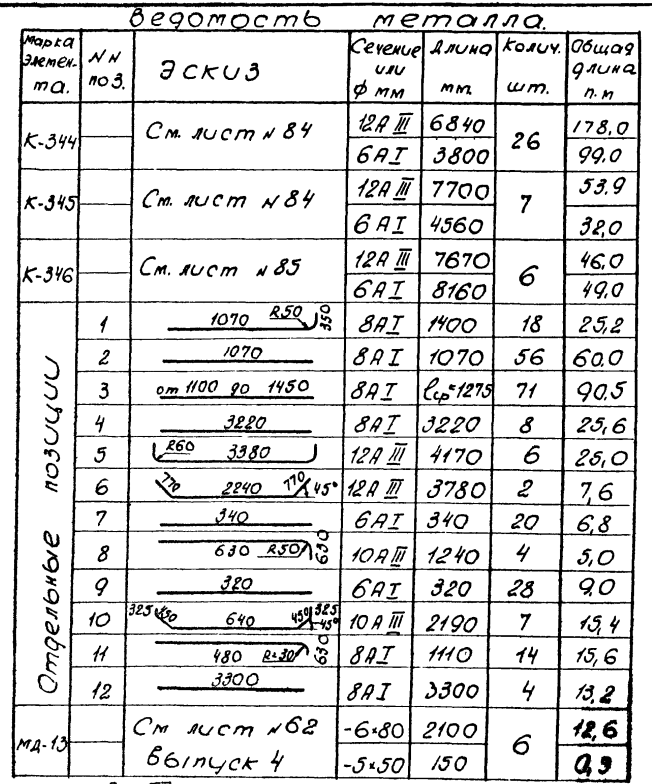 Ведомость металла.
Марка элемен-та. | NN поз. | Эскиз | Сечение или ф мм | Длина мм | Колич. шт. | Общая длина п.м
К-344 | — | См. лист N 84 | 12АIII | 6840 | 26 | 178,0
6АI | 3800 | 99,0
К-345 | — | См. лист N 84 | 12АIII | 7700 | 7 | 53,9
6АI | 4560 | 32,0
К-346 | — | См. лист N 85 | 12АIII | 7670 | 6 | 46,0
6АI | 8160 | 49,0
Отдельные позиции
1 | 1070 R50 350 | 8АI | 1400 | 18 | 25,2
2 | 1070 | 8АI | 1070 | 56 | 60,0
3 | от 1100 до 1450 | 8АI | lср=1275 | 71 | 90,5
4 | 3220 | 8АI | 3220 | 8 | 25,6
5 | R60 3380 | 12АIII | 4170 | 6 | 25,0
6 | 770 2240 770 45° | 12АIII | 3780 | 2 | 7,6
7 | 340 | 6АI | 340 | 20 | 6,8
8 | 630 R50 630 | 10АIII | 1240 | 4 | 5,0
9 | 320 | 6АI | 320 | 28 | 9,0
10 | 325 450 640 450 325 45° | 10АIII | 2190 | 7 | 15,4
11 | 480 R=30 630 | 8АI | 1110 | 14 | 15,6
12 | 3300 | 8АI | 3300 | 4 | 13,2
МД-13 | — | См лист N62 | -6×80 | 2100 | 6 | 12,6
Выпуск 4 | -5×50 | 150 | 0,9